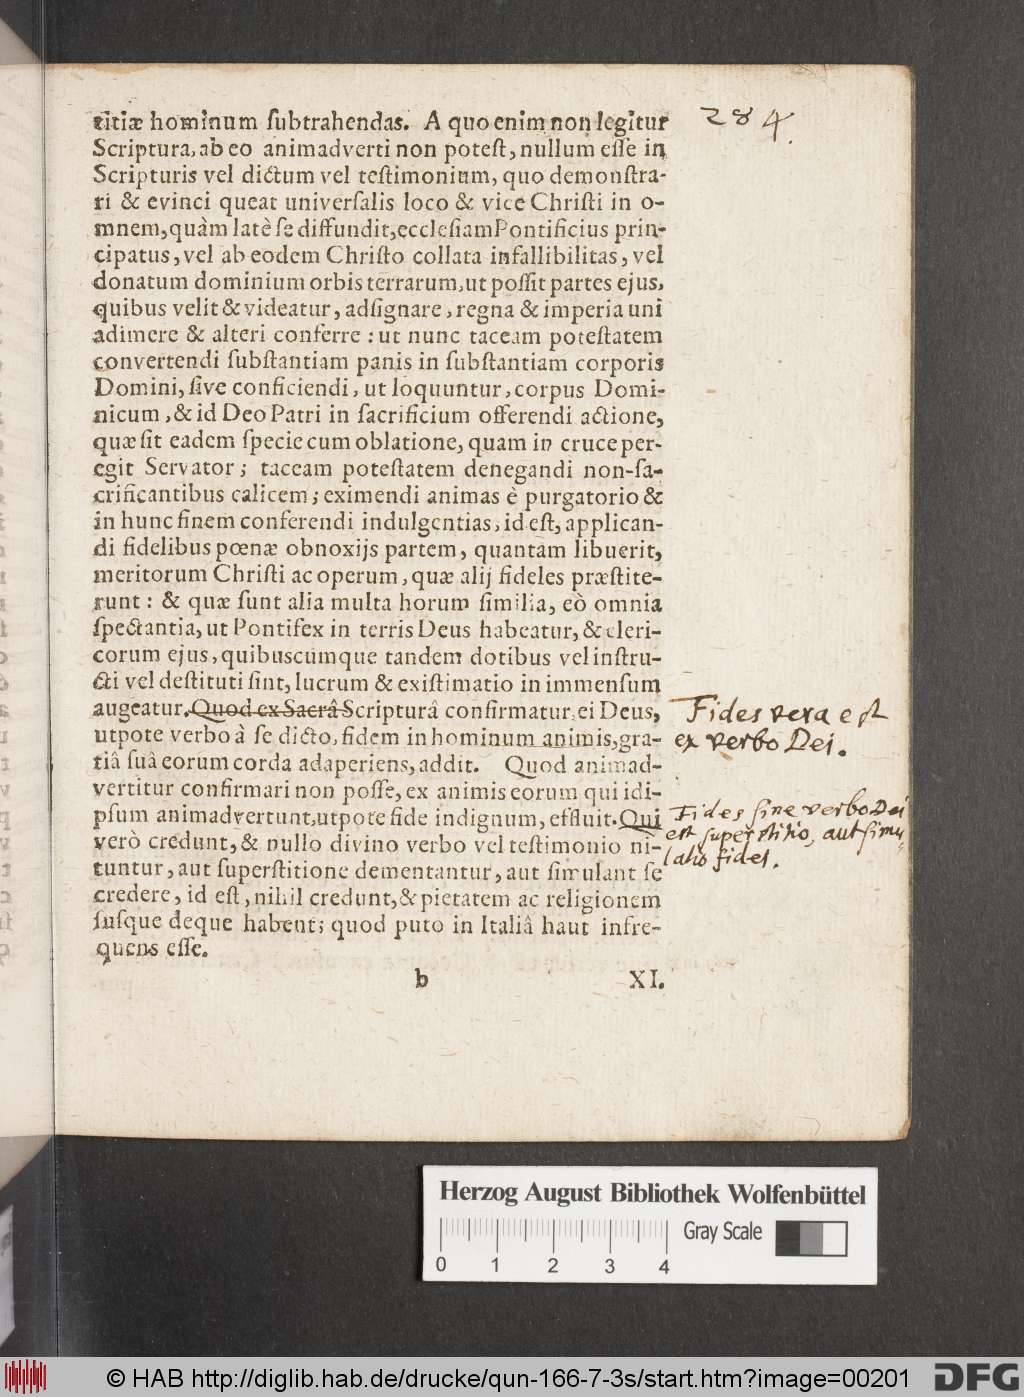 284.
titiæ hominum ſubtrahendas. A quo enim non legitur
Scriptura, ab eo animadverti non poteſt, nullum eſſe in
Scripturis vel dictum vel teſtimonium, quo demonſtra-
ri & evinci queat univerſalis loco & vice Chriſti in o-
mnem, quàm latè ſe diffundit, eccleſiam Pontificius prin-
cipatus, vel ab eodem Chriſto collata infallibilitas, vel
donatum dominium orbis terrarum, ut poſſit partes ejus,
quibus velit & videatur, adſignare, regna & imperia uni
adimere & alteri conferre : ut nunc taceam poteſtatem
convertendi ſubſtantiam panis in ſubſtantiam corporis
Domini, ſive conficiendi, ut loquuntur, corpus Domi-
nicum, & id Deo Patri in ſacrificium offerendi actione,
quæ ſit eadem ſpecie cum oblatione, quam in cruce per-
egit Servator ; taceam poteſtatem denegandi non-ſa-
crificantibus calicem ; eximendi animas è purgatorio &
in hunc finem conferendi indulgentias, id eſt, applican-
di fidelibus pœnæ obnoxijs partem, quantam libuerit,
meritorum Chriſti ac operum, quæ alij fideles præſtite-
runt : & quæ ſunt alia multa horum ſimilia, eò omnia
ſpectantia, ut Pontifex in terris Deus habeatur, & cleri-
corum ejus, quibuscumque tandem dotibus vel inſtru-
cti vel deſtituti ſint, lucrum & exiſtimatio in immenſum
augeatur. Quod ex Sacrâ Scripturâ confirmatur, ei Deus,
utpote verbo à ſe dicto, fidem in hominum animis, gra-
tiâ ſuâ eorum corda adaperiens, addit. Quod animad-
vertitur confirmari non poſſe, ex animis eorum qui idi-
pſum animadvertunt, utpote fide indignum, effluit. Qui
verò credunt, & nullo divino verbo vel teſtimonio ni-
tuntur, aut ſuperſtitione dementantur, aut ſimulant ſe
credere, id eſt, nihil credunt, & pietatem ac religionem
ſuſque deque habent ; quod puto in Italiâ haut infre-
quens eſſe.
b XI.
Fides vera eſt
ex verbo Dei.
Fides ſine verbo Dei
eſt ſuperſtitio, aut ſimu
latio fidei.
Herzog August Bibliothek Wolfenbüttel
Gray Scale
0 1 2 3 4
© HAB http://diglib.hab.de/drucke/qun-166-7-3s/start.htm?image=00201
DFG